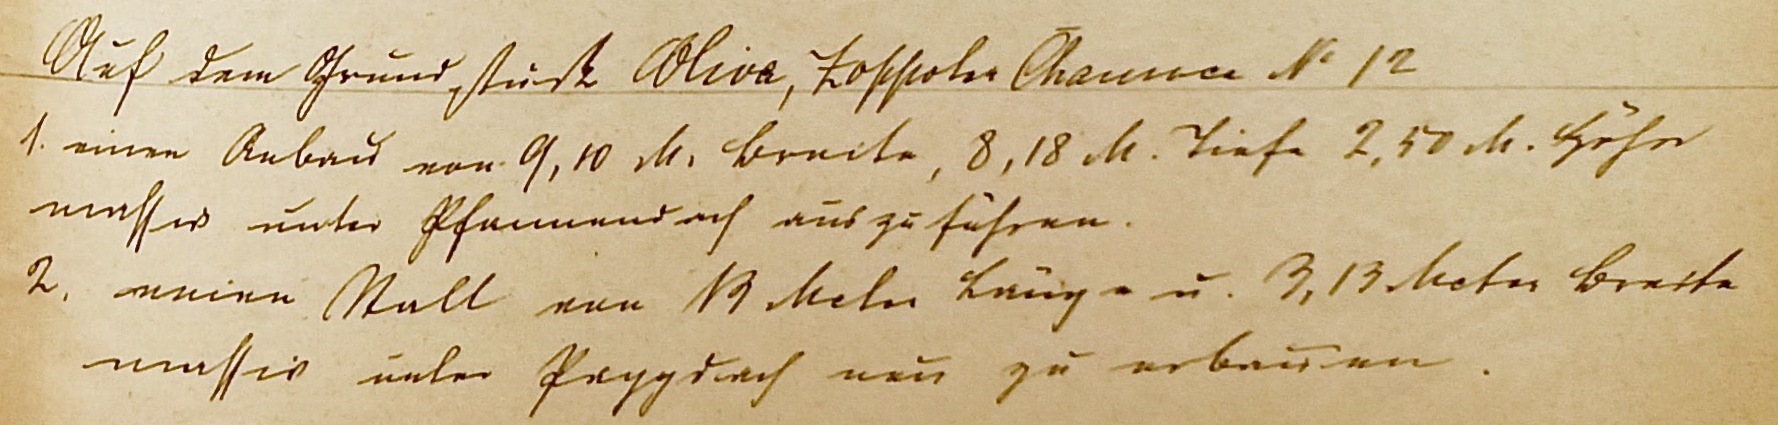 Auf dem Grundstück Oliva, Zoppoter Chaussee No 12
1. einen Anbau von 9,10 M. Breite, 8,18 M. Tiefe 2,50 M. Höhe
massiv unter Pfannendach auszuführen.
2. einen Stall von 13 Meter Länge u. 3,13 Meter Breite
massiv unter Pappdach neu zu erbauen.